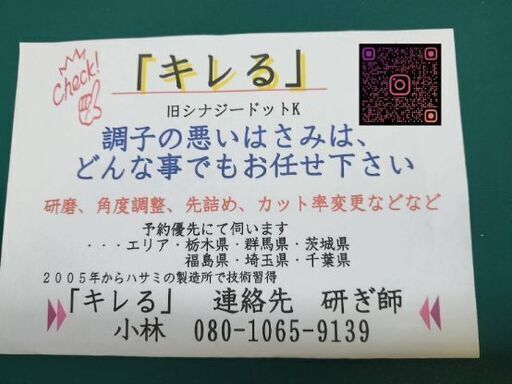 Check!
「キレる」
旧シナジードットK
調子の悪いはさみは、
どんな事でもお任せ下さい
研磨、角度調整、先詰め、カット率変更などなど
予約優先にて伺います
・・・エリア・栃木県・群馬県・茨城県
福島県・埼玉県・千葉県
2005年からハサミの製造所で技術習得
「キレる」 連絡先 研ぎ師
小林 080-1065-9139